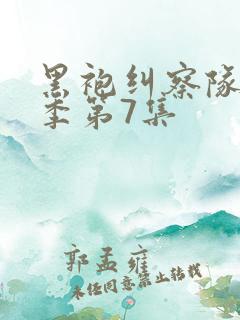 黑袍纠察队
季第7集
郭孟雍
未经同意禁止转载